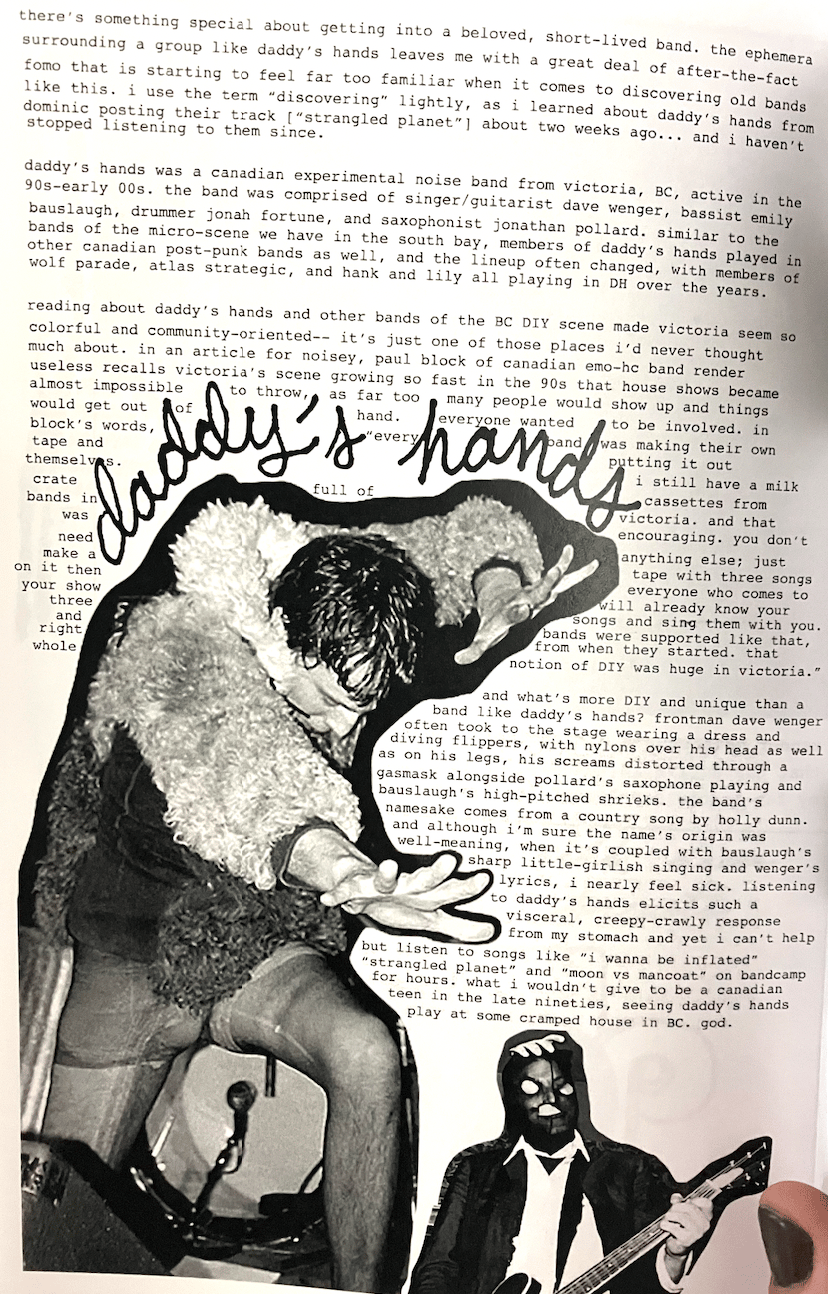 there's something special about getting into a beloved, short-lived band. the ephemera
surrounding a group like daddy's hands leaves me with a great deal of after-the-fact
fomo that is starting to feel far too familiar when it comes to discovering old bands
like this. i use the term "discovering" lightly, as i learned about daddy's hands from
dominic posting their track ["strangled planet"] about two weeks ago... and i haven't
stopped listening to them since.
daddy's hands was a canadian experimental noise band from victoria, BC, active in the
90s-early 00s. the band was comprised of singer/guitarist dave wenger, bassist emily
bauslaugh, drummer jonah fortune, and saxophonist jonathan pollard. similar to the
bands of the micro-scene we have in the south bay, members of daddy's hands played in
other canadian post-punk bands as well, and the lineup often changed, with members of
wolf parade, atlas strategic, and hank and lily all playing in DH over the years.
reading about daddy's hands and other bands of the BC DIY scene made victoria seem so
colorful and community-oriented-- it's just one of those places i'd never thought
much about. in an article for noisey, paul block of canadian emo-hc band render
useless recalls victoria's scene growing so fast in the 90s that house shows became
almost impossible to throw, as far too many people would show up and things
would get out of hand. everyone wanted to be involved. in
block's words, "every band was making their own
tape and putting it out
themselves. i still have a milk
crate full of cassettes from
bands in victoria. and that
was encouraging. you don't
need anything else; just
make a tape with three songs
on it then everyone who comes to
your show will already know your
three songs and sing them with you.
and bands were supported like that,
right from when they started. that
whole notion of DIY was huge in victoria."
daddy's hands
and what's more DIY and unique than a
band like daddy's hands? frontman dave wenger
often took to the stage wearing a dress and
diving flippers, with nylons over his head as well
as on his legs, his screams distorted through a
gasmask alongside pollard's saxophone playing and
bauslaugh's high-pitched shrieks. the band's
namesake comes from a country song by holly dunn.
and although i'm sure the name's origin was
well-meaning, when it's coupled with bauslaugh's
sharp little-girlish singing and wenger's
lyrics, i nearly feel sick. listening
to daddy's hands elicits such a
visceral, creepy-crawly response
from my stomach and yet i can't help
but listen to songs like "i wanna be inflated"
"strangled planet" and "moon vs mancoat" on bandcamp
for hours. what i wouldn't give to be a canadian
teen in the late nineties, seeing daddy's hands
play at some cramped house in BC. god.